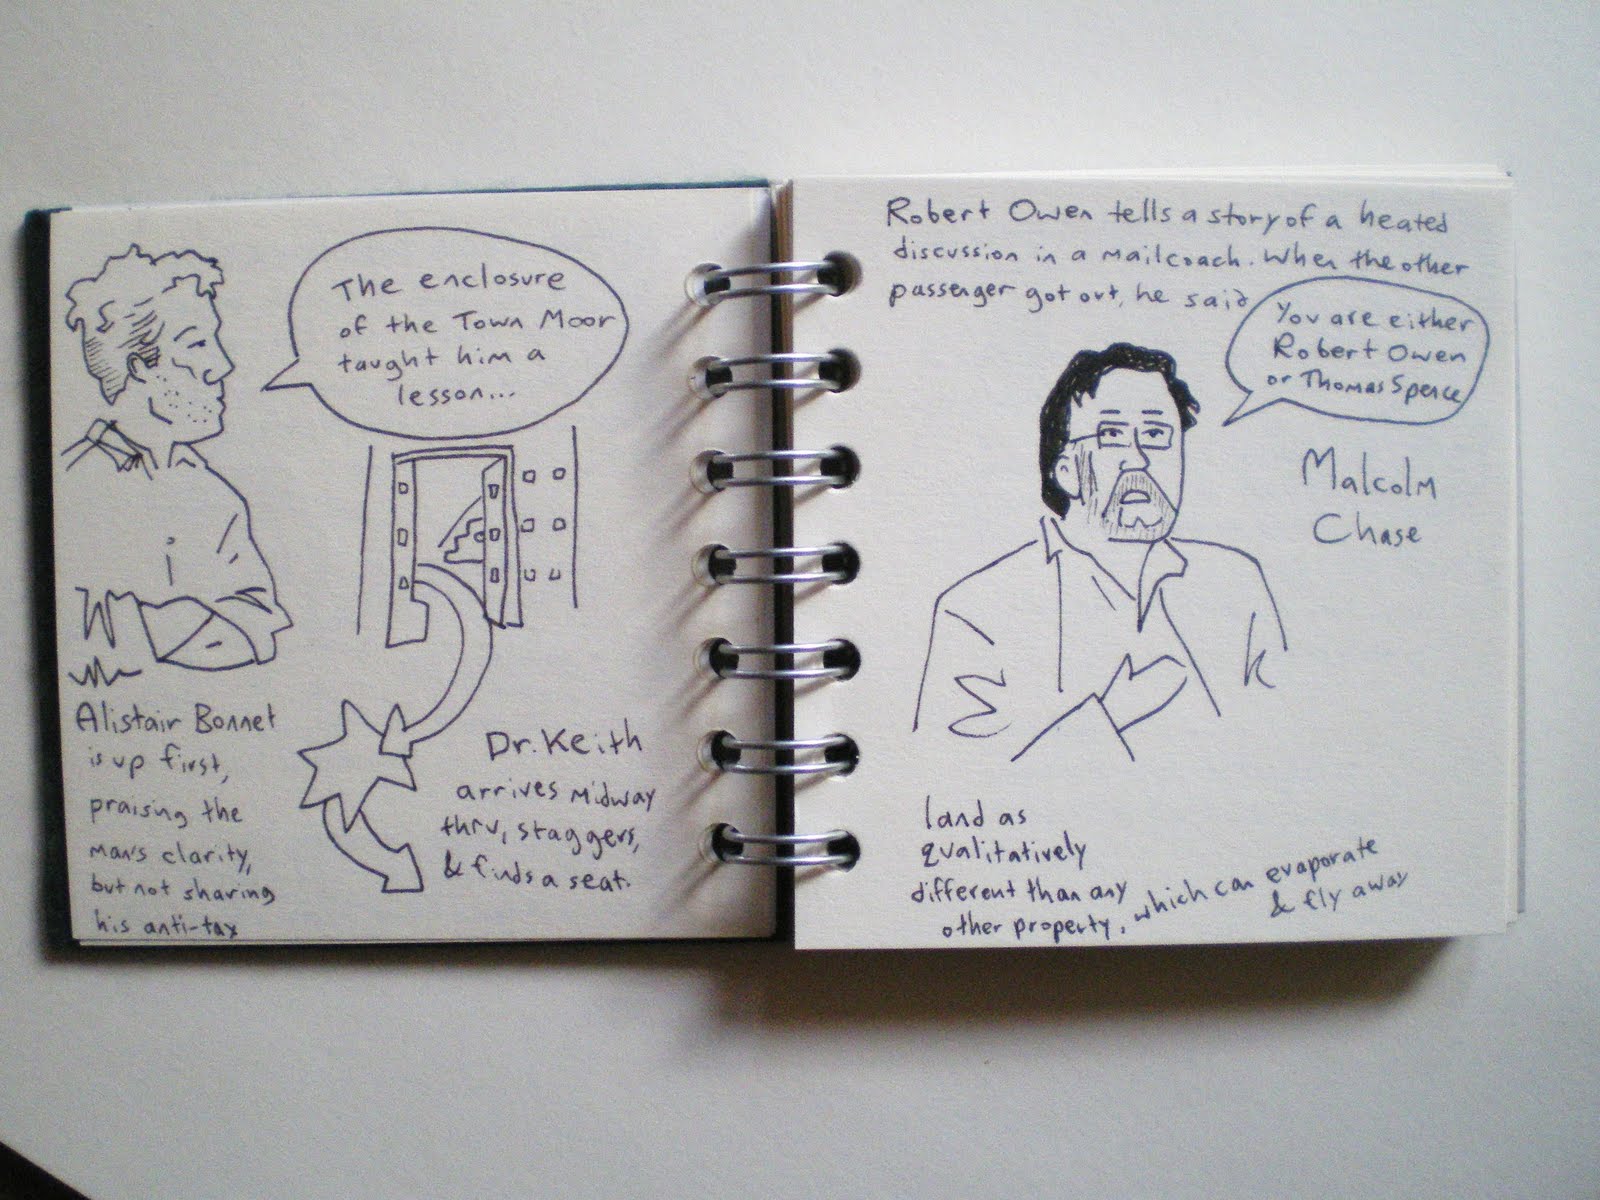 The enclosure
of the Town Moor
taught him a
lesson...
Alistair Bonnet
is up first,
praising the
man's clarity,
but not sharing
his anti-tax
Dr. Keith
arrives midway
thru, staggers,
& finds a seat.
Robert Owen tells a story of a heated
discussion in a mailcoach. When the other
passenger got out, he said
You are either
Robert Owen
or Thomas Spence
Malcolm
Chase
land as
qualitatively
different than any
other property, which can evaporate
& fly away